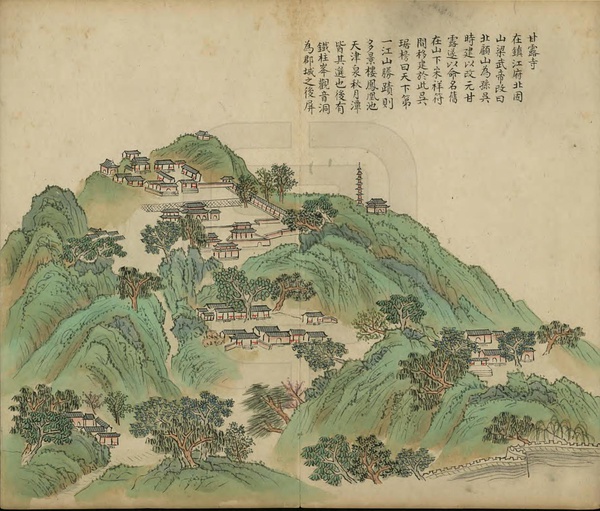 甘露寺
在鎮江府北固
山梁武帝改曰
北顧山為孫吳
時建以改元甘
露遂以命名舊
在山下宋祥符
間移建於此吳
琚榜曰天下第
一江山勝蹟則
多景樓鳳凰池
天津泉秋月潭
皆其選也後有
鐵柱峯觀音洞
為郡城之後屏